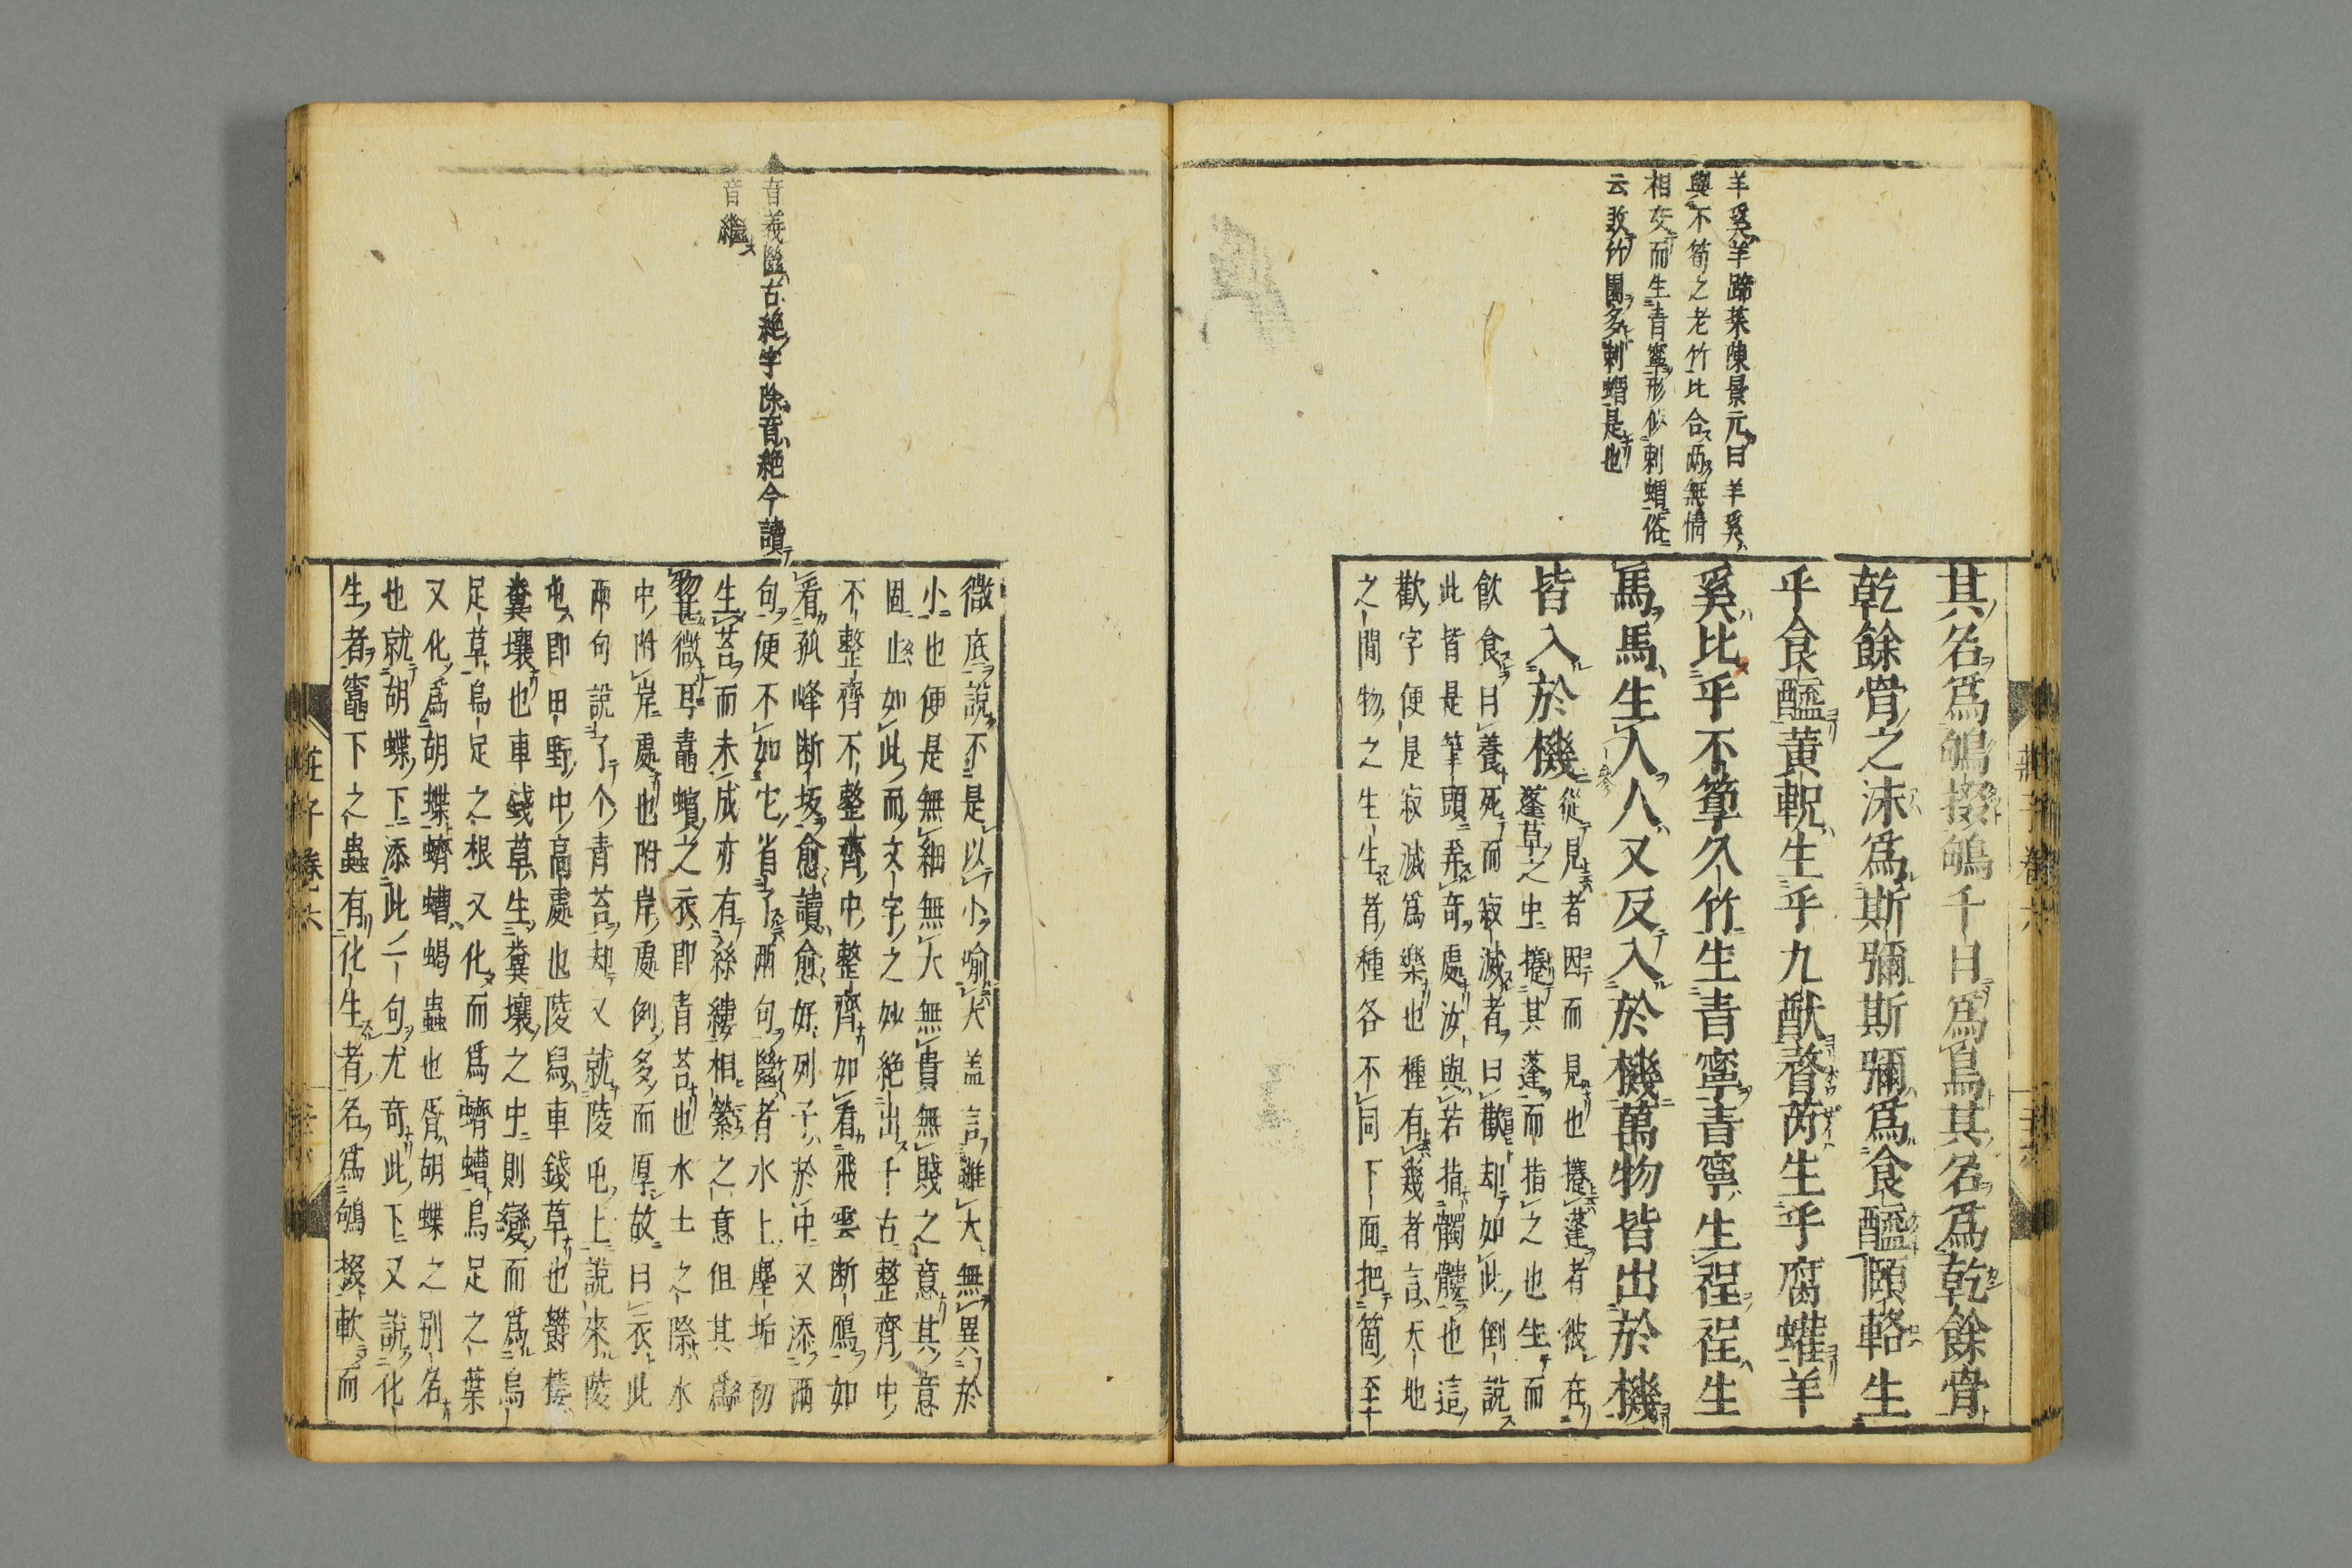 羊奚羊蹄菜陳景元曰羊奚
與不筍之老竹比合両無情
相交而生青寧形似刺蝟俗
云敗竹園多刺蝟是也
其名爲鴝掇鴝掇千日爲鳥其名爲乾餘骨
乾餘骨之沫爲斯彌斯彌爲食醯頤輅生
乎食醯黃軦生乎九猷瞀芮生乎腐蠸羊
奚比乎不箰久竹生青寧青寧生程程生
馬馬生人人又反入於機萬物皆出於機
皆入於機
從見者因而見也攓蓬者彼在
蓬草之中攓其蓬而指之也生而
飲食曰養死而寂滅者曰歡却如此倒說
此皆是筆頭弄奇處汝與若指髑髏也這
歡字便是寂滅爲樂也種有幾者言天地
之間物之生生者種各不同下面把箇至
莊子卷六
音義㡭古絶字除音絶今讀
音繼
微底說不是以小喻大盖言雖大無異於
小也便是無細無大無貴無賤之意其意
固止如此而文字之妙絶出千古整齊中
不整齊不整齊中整齊如看飛雲断鴈如
看孤峰断坂愈讀愈好列子於中又添両
句便不如它省了両句㡭者水上塵垢初
生苔而未成亦有絲縷相縈之意但其爲
物甚微耳鼃蠙之衣即青苔也水土之際水
中附岸處也附岸處例多而厚故曰衣此
両句說了个青苔却又就陵屯上說來陵
屯即田野中高處也陵舄車錢草也欝棲
糞壤也車錢草生糞壤之中則變而爲烏
足草烏足之根又化而爲蠐螬烏足之葉
又化爲胡蝶蠐螬蝎蟲也胥胡蝶之別名
也就胡蝶下添此二句尤奇此下又說化
生者竈下之蟲有化生者名爲鴝掇軟而
莊子卷六